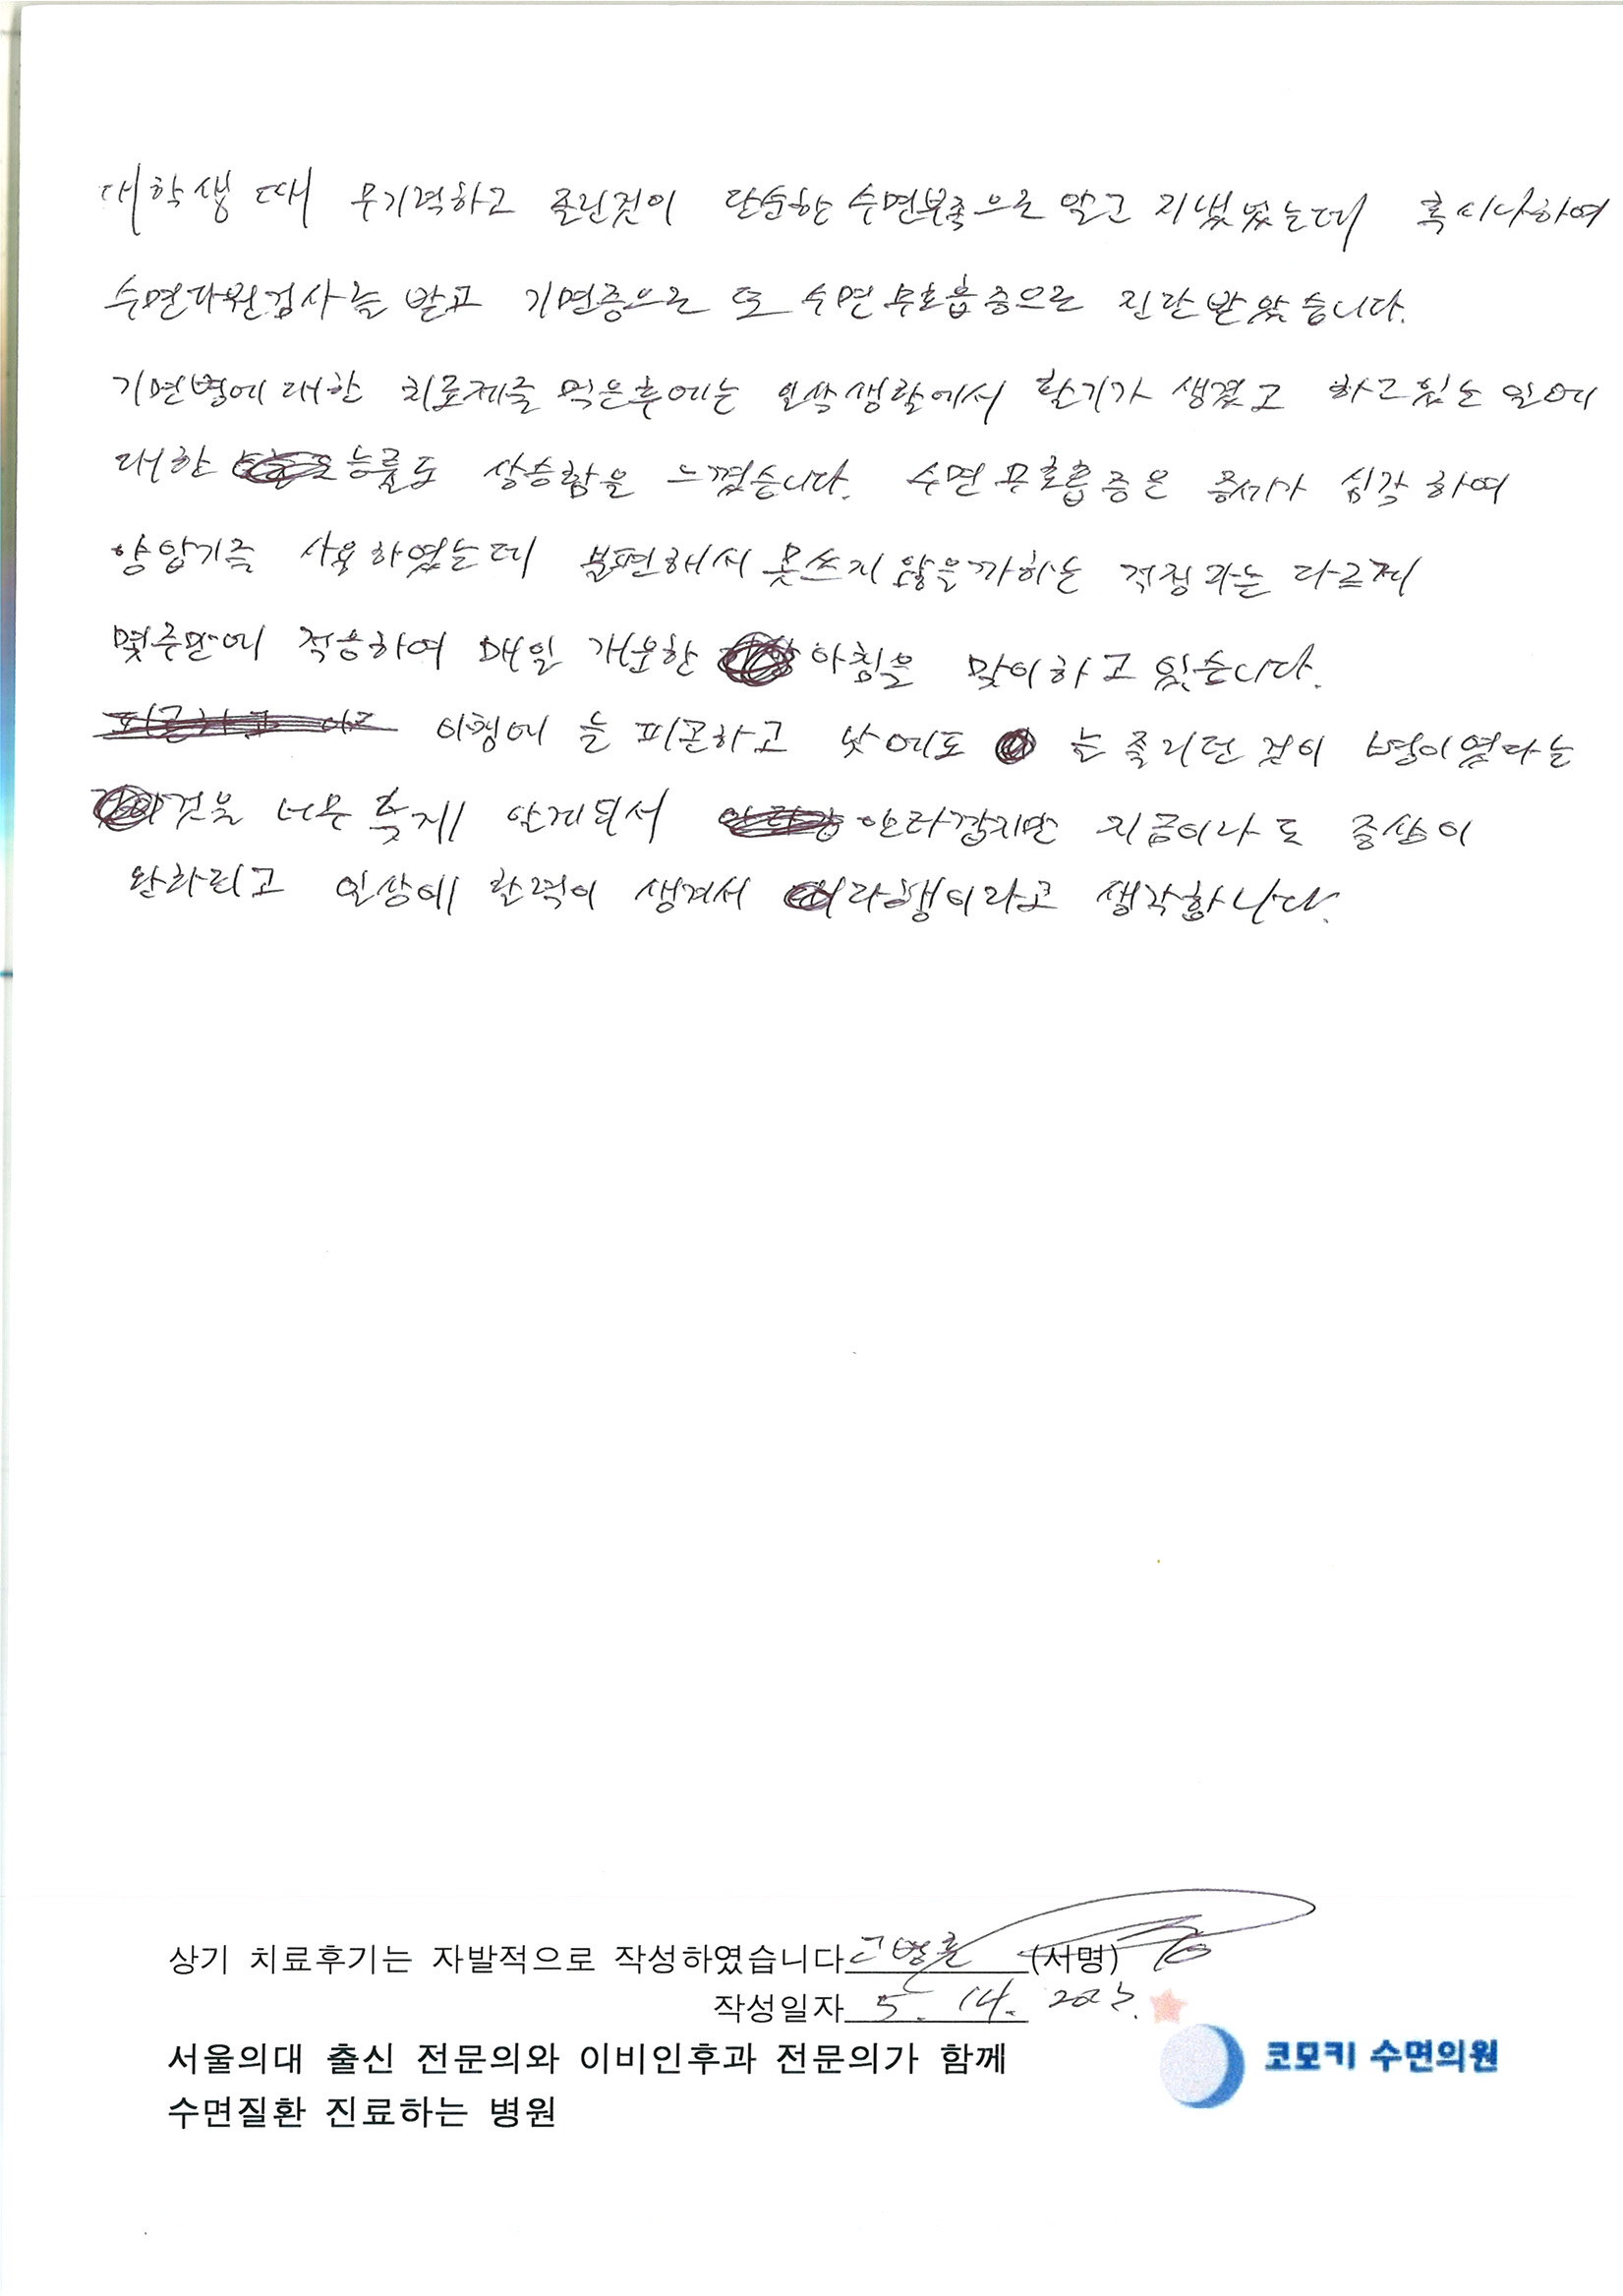 대학생 때 무기력하고 졸린것이 단순한 수면부족으로 알고 지냈었는데 혹시나하여
수면다원검사를 받고 기면증으로 또 수면 무호흡증으로 진단받았습니다.
기면병에 대한 치료제를 먹은후에는 일상생활에서 활기가 생겼고 하고있는 일에
대한 능률도 상승함을 느꼈습니다. 수면 무호흡증은 증세가 심각하여
양압기를 사용하였는데 불편해서 못쓰지 않을까하는 걱정과는 다르게
몇주만에 적응하여 매일 개운한 아침을 맞이하고 있습니다.
아침에 늘 피곤하고 낮에도 늘 졸리던 것이 병이였다는
것을 너무 늦게 알게되서 안타깝지만 지금이나도 증상이
완화되고 일상에 활력이 생겨서 다행이라고 생각합니다.
상기 치료후기는 자발적으로 작성하였습니다 (서명)
작성일자 5. 14. 2023.
서울의대 출신 전문의와 이비인후과 전문의가 함께
수면질환 진료하는 병원
코모키 수면의원